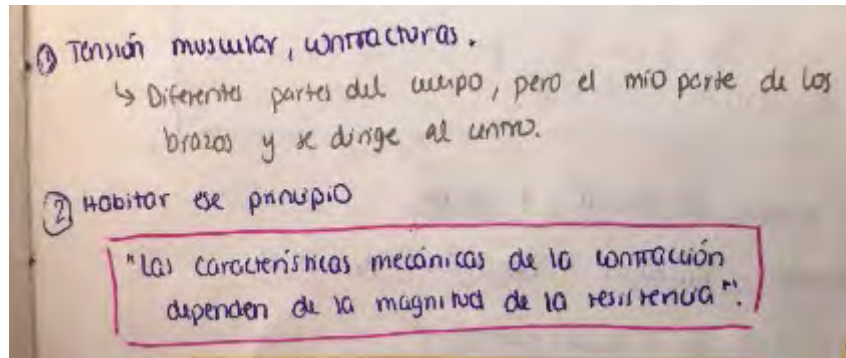 ① Tensión muscular, contracturas.
↳ Diferentes partes del cuerpo, pero el mío parte de los
brazos y se dirige al centro.
② Habitar ese principio
"Las características mecánicas de la contracción
dependen de la magnitud de la resistencia".